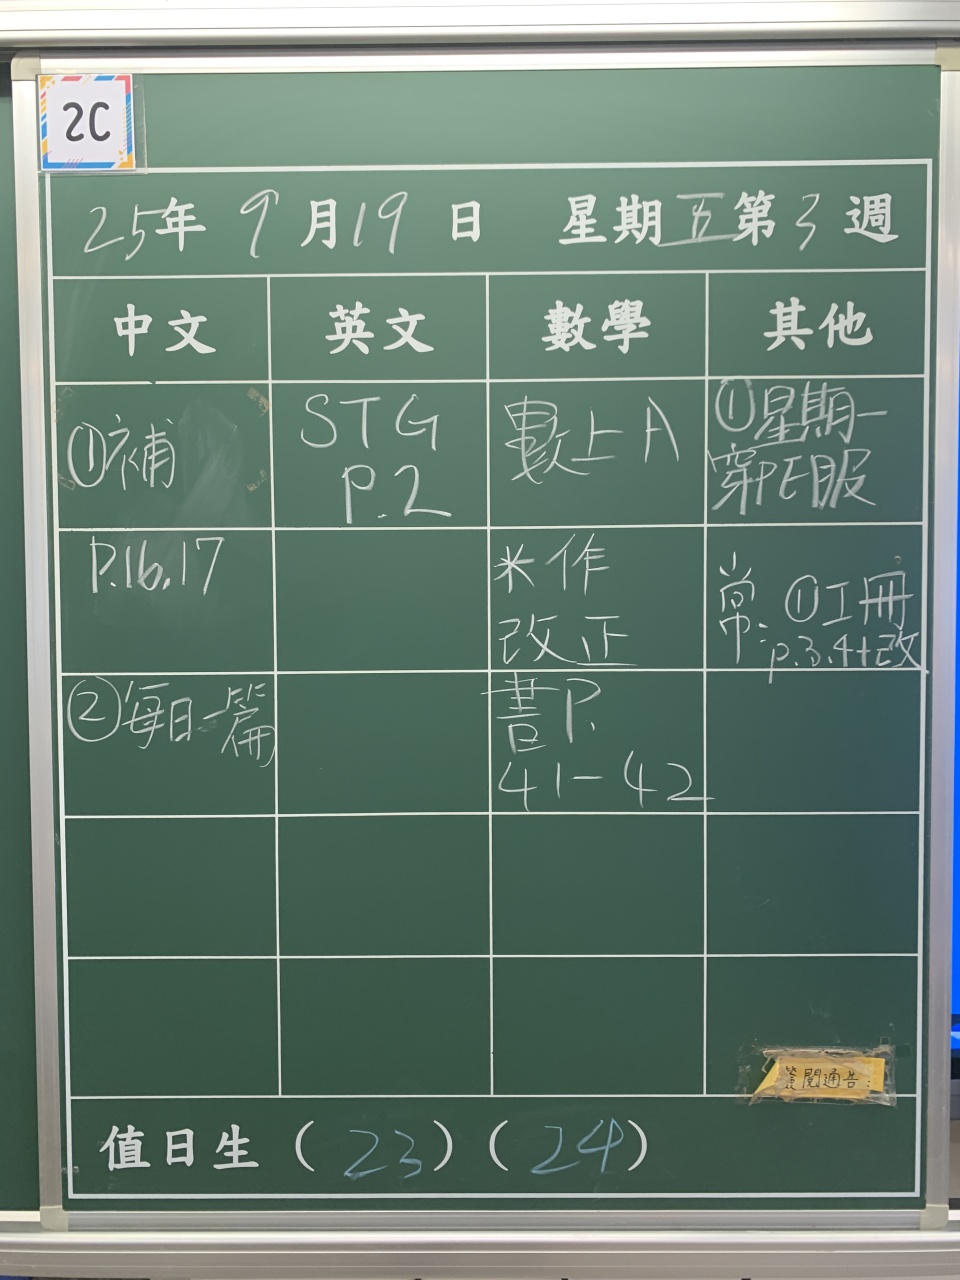 2C
25年9月19日 星期五第3週
中文 英文 數學 其他
①補
P.16.17
②每日一篇
STG
P.2
數上A
米作
改正
書P.
41-42
①星期一
穿PE服
常:①工冊
p.3.4+改
簽閱通告:
值日生(23)(24)